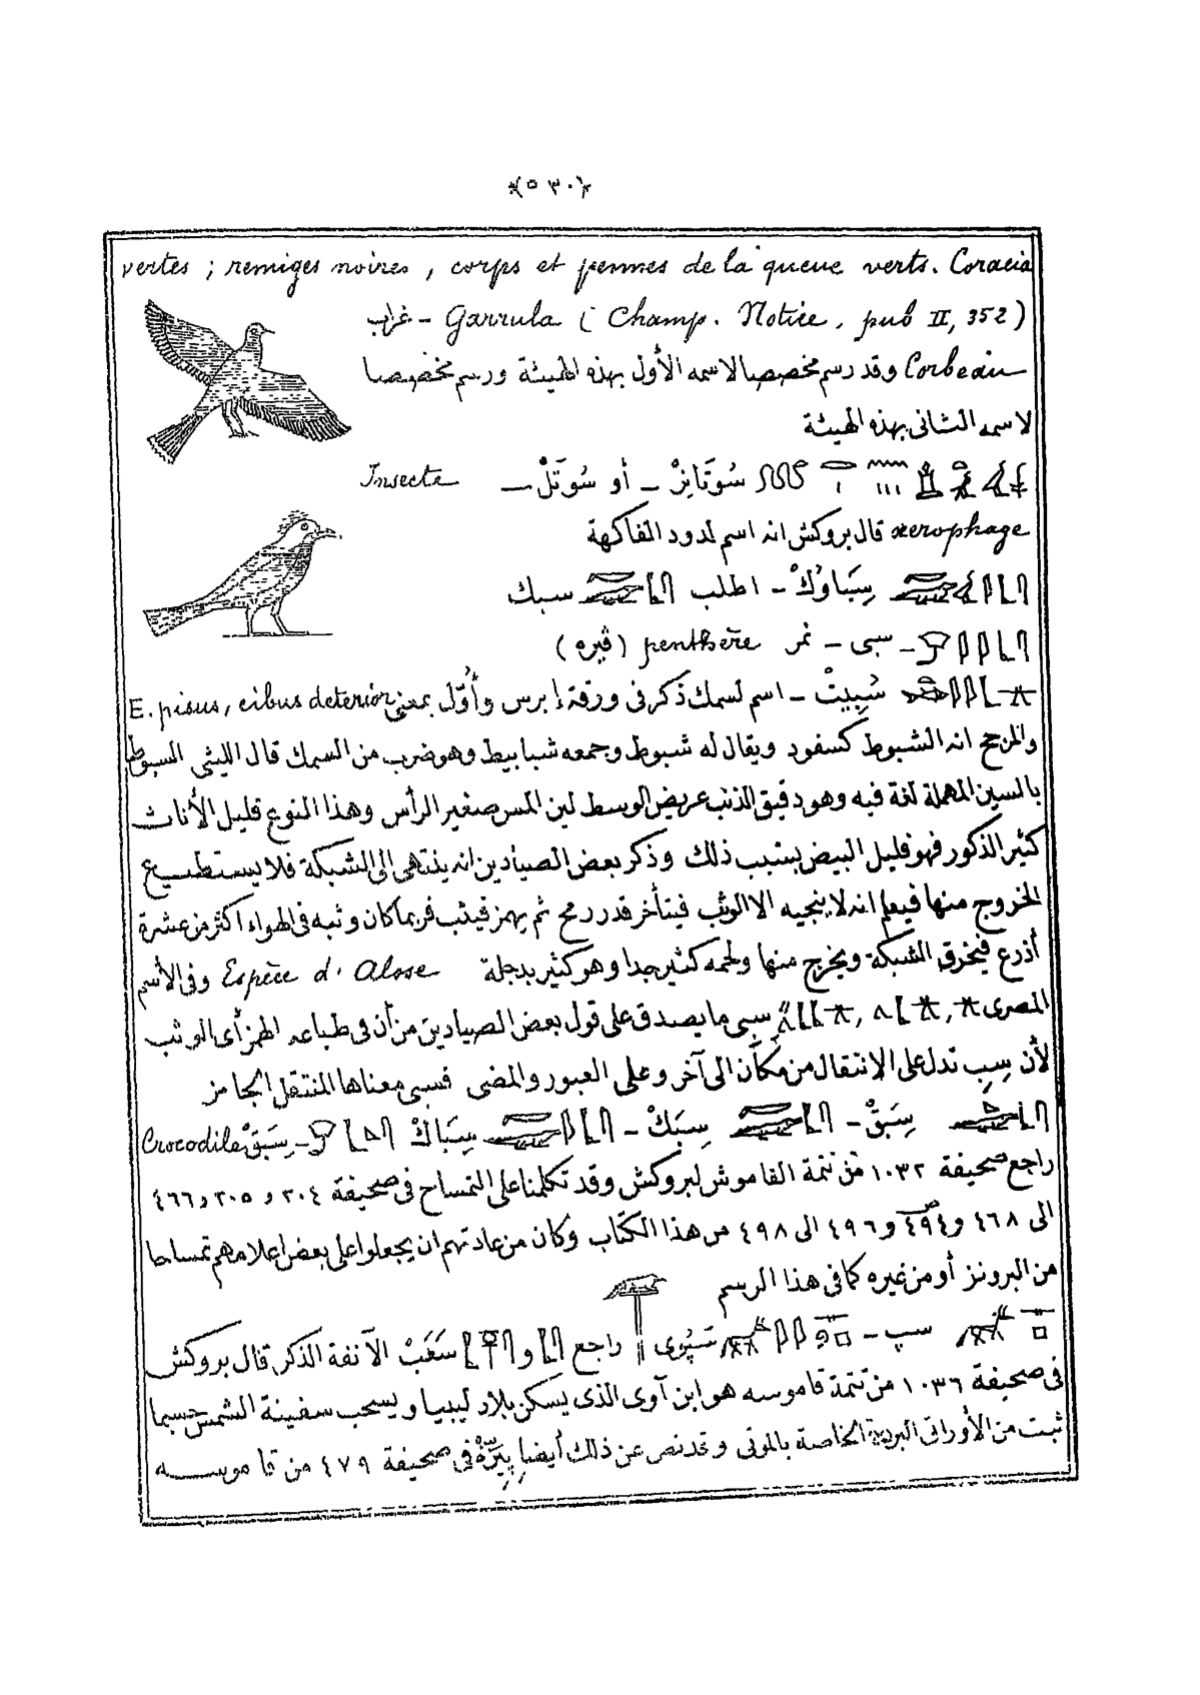 ﴿٥٣٠﴾
vertes ; remiges noires , corps et pennes de la queue verts. Coracia
Garrula ( Champ. Notice, pub II, 352 ) – غراب
Corbeau وقد رسم مخصصا لاسمه الأول بهذه الهيئة ورسم مخصصا
لاسمه الثانى بهذه الهيئة
سُوتَانِزْ – أو سُوتَلْ – Insecte
xerophage قال بروكش انه اسم لدود الفاكهة
سِبَاوُكْ – اطلب سبك
– سبى – نمر penthère (قيره)
سُبِيتْ – اسم لسمك ذكر فى ورقة إبرس وأُوّل بمعنى E. pisus, cibus deterior
والمرجح انه الشبوط كسفود ويقال له شبوط وجمعه شبابيط وهو ضرب من السمك قال الليثى السبوط
بالسين المهملة لغة فيه وهو دقيق الذنب عريض الوسط لين المس صغير الرأس وهذا النوع قليل الأناث
كثير الذكور فهو قليل البيض بسبب ذلك وذكر بعض الصيادين انه ينتهى الى الشبكة فلا يستطيع
الخروج منها فيعلم انه لا ينجيه الا الوثب فيتأخر قدر رمح ثم يهمز فيثب فربما كان وثبه فى الهواء اكثر من عشرة
أذرع فيخرق الشبكة ويخرج منها ولحمه كثير جدا وهو كثير بدجلة Espèce d' Alose وفى الأسم
المصرى سبى ما يصدق على قول بعض الصيادين من أن فى طباعه الهمز أى الوثب
لأن سِبِ تدل على الانتقال من مكان الى آخر وعلى العبور والمضى فسبى معناها المنتقل الجامز
سِبَقْ – سِبَكْ – سِبَاكْ – سِبَقْ Crocodile
راجع صحيفة ١٠٣٢ من تتمة القاموس لبروكش وقد تكلمنا على التمساح فى صحيفة ٢٠٤ و ٢٠٥ و ٤٦٦
الى ٤٦٨ و ٤٩٤ و ٤٩٦ الى ٤٩٨ من هذا الكتاب وكان من عادتهم ان يجعلوا على بعض اعلامهم تمساحا
من البرونز أو من غيره كما فى هذا الرسم
سپ – سَپُوى راجع و سَعَبْ الآنفة الذكر قال بروكش
فى صحيفة ١٠٣٦ من تتمة قاموسه هو ابن آوى الذى يسكن بلاد ليبيا ويسحب سفينة الشمس حسبما
ثبت من الأوراق البردية الخاصة بالموتى وقد نص عن ذلك أيضا فى صحيفة ٤٧٩ من قاموسه